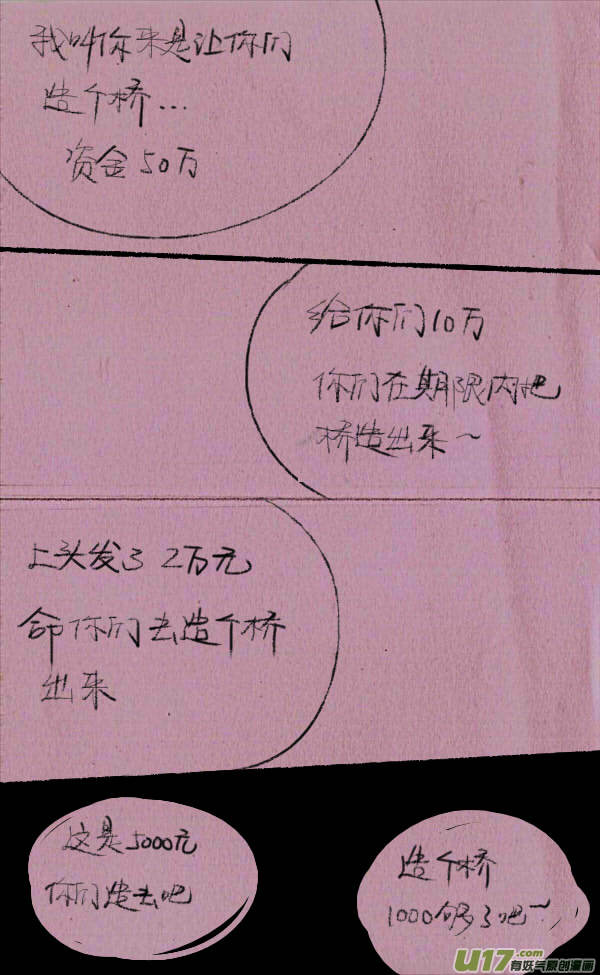 我叫你来是让你们
造个桥...
资金50万
给你们10万
你们在期限内把
桥造出来~
上头发了2万元
命你们去造个桥
出来
这是5000元
你们造去吧
造个桥
1000够了吧~
U17.com
有妖气原创漫画